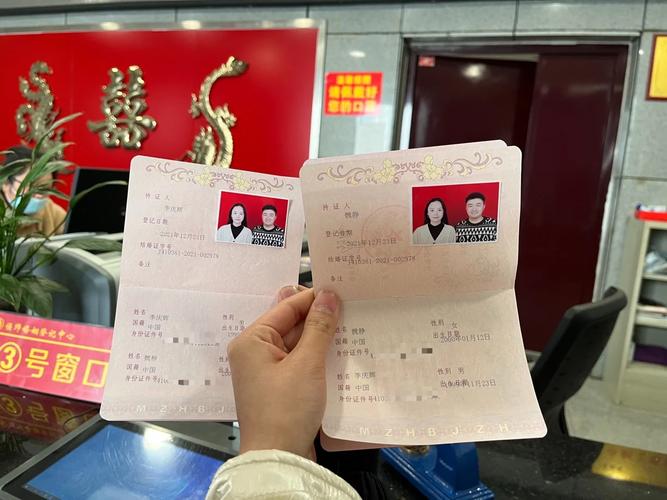 囍
温馨提醒
请佩戴好
您的口罩
婚姻登记中心
3号窗口
持证人
李庆辉
登记日期
2021年12月23日
结婚证字号
J410381-2021-002978
备注
姓名 李庆辉 性别 男
国籍 中国 出生日期
身份证件号
姓名 魏静
国籍 中国
身份证件号410
MZHBJZ
持证人
魏静
登记日期
2021年12月23日
结婚证字号
J410381-2021-002978
备注
姓名 魏静 性别 女
国籍 中国 出生日期
身份证件号
姓名 李庆辉 性别 男
国籍 中国 出生日期
身份证件号410
MZHBJZH